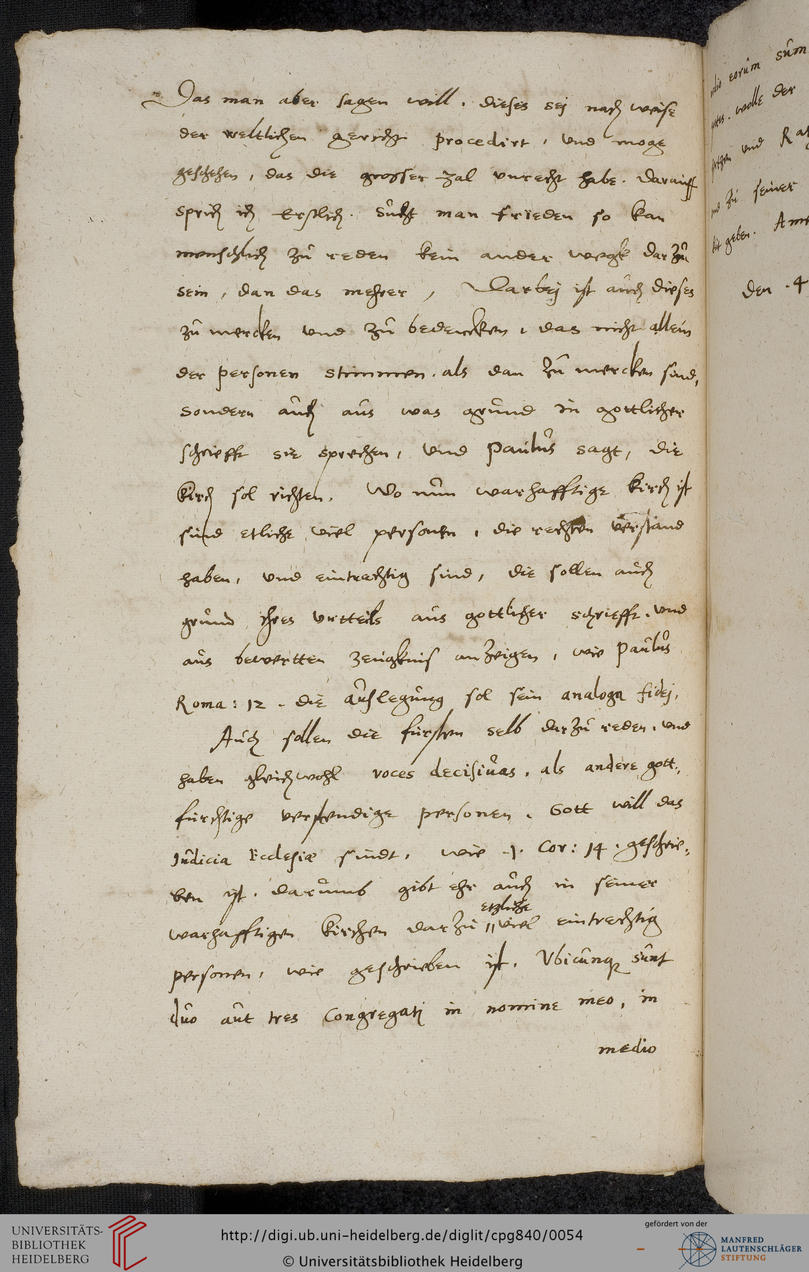 Das man aber sagen will, dieses sej nach weise
der weltlichen gericht procedirt, und moge
geschehen, das die grosser zal unrecht habe. Darauff
sprich ich Erstlich. Sucht man frieden so kan
menschlich zu reden kein ander wegk dar zu
sein, dan das mehrer, Darbej ist auch dieses
zu mercken und zu bedencken, das nicht allein
der personen stimmen. als dan zu mercken sind,
sondern auch aus was grund in gottlicher
schriefft sie sprechen, und Paulus sagt, die
Kirch sol richten. Wo nun warhafftige kirch ist
sind etliche viel personen, die rechten verstand
haben, und eintrechtig sind, die sollen auch
grund ihres urtteils aus gottlicher schriefft. und
aus bewertten zeugknis anzeigen, wie Paulus
Roma: 12. die auslegung sol sein analoga fidej.
Auch sollen die fursten selb darzu reden, und
haben gleichwohl voces decisivas, als andere gott-
furchtige verstendige personen. Gott will das
Judicia Ecclesiæ sindt, wie 1. Cor: 14. geschrie-
ben ist. darumb gibt ehr auch in seiner
warhafftigen kirchen darzu etzliche viel eintrechtig
personen, wie geschrieben ist. Ubicunq sunt
duo aut tres Congregati in nomine meo, in
medio
eorum sum
wolle der
und
zu seiner
geben. Ame
den 4
UNIVERSITÄTS-
BIBLIOTHEK
HEIDELBERG
http://digi.ub.uni-heidelberg.de/diglit/cpg840/0054
© Universitätsbibliothek Heidelberg
gefördert von der
MANFRED
LAUTENSCHLÄGER
STIFTUNG